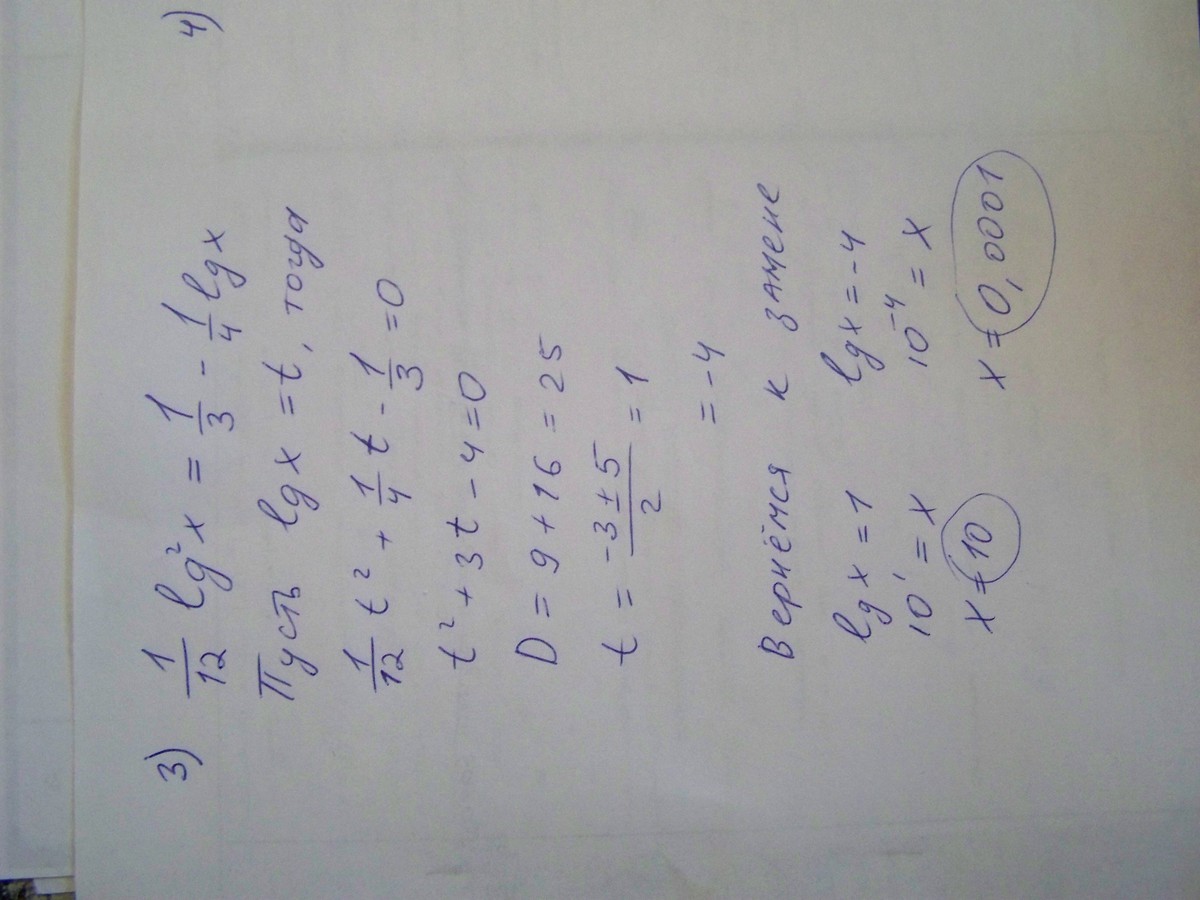 3) 1/12 lg²x = 1/3 - 1/4 lgx
Пусть lgx = t, тогда
1/12 t² + 1/4 t - 1/3 = 0
t² + 3t - 4 = 0
D = 9 + 16 = 25
t = (-3 ± 5)/2 = 1
= -4
Вернёмся к замене
lgx = 1 lgx = -4
10¹ = x 10⁻⁴ = x
x = 10 x = 0,0001
4)